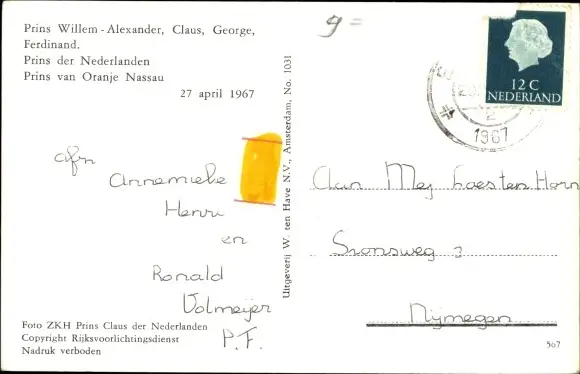 Prins Willem-Alexander, Claus, George,
Ferdinand.
Prins der Nederlanden
Prins van Oranje Nassau
27 april 1967
g =
afn
Annemieke
Henri
en
Ronald
Volmeijer
P.F.
Foto ZKH Prins Claus der Nederlanden
Copyright Rijksvoorlichtingsdienst
Nadruk verboden
Uitgeverij W. ten Have N.V., Amsterdam, No. 1031
12 C
NEDERLAND
2
1967
Aan Mej
Sionsweg 2
Nijmegen
567